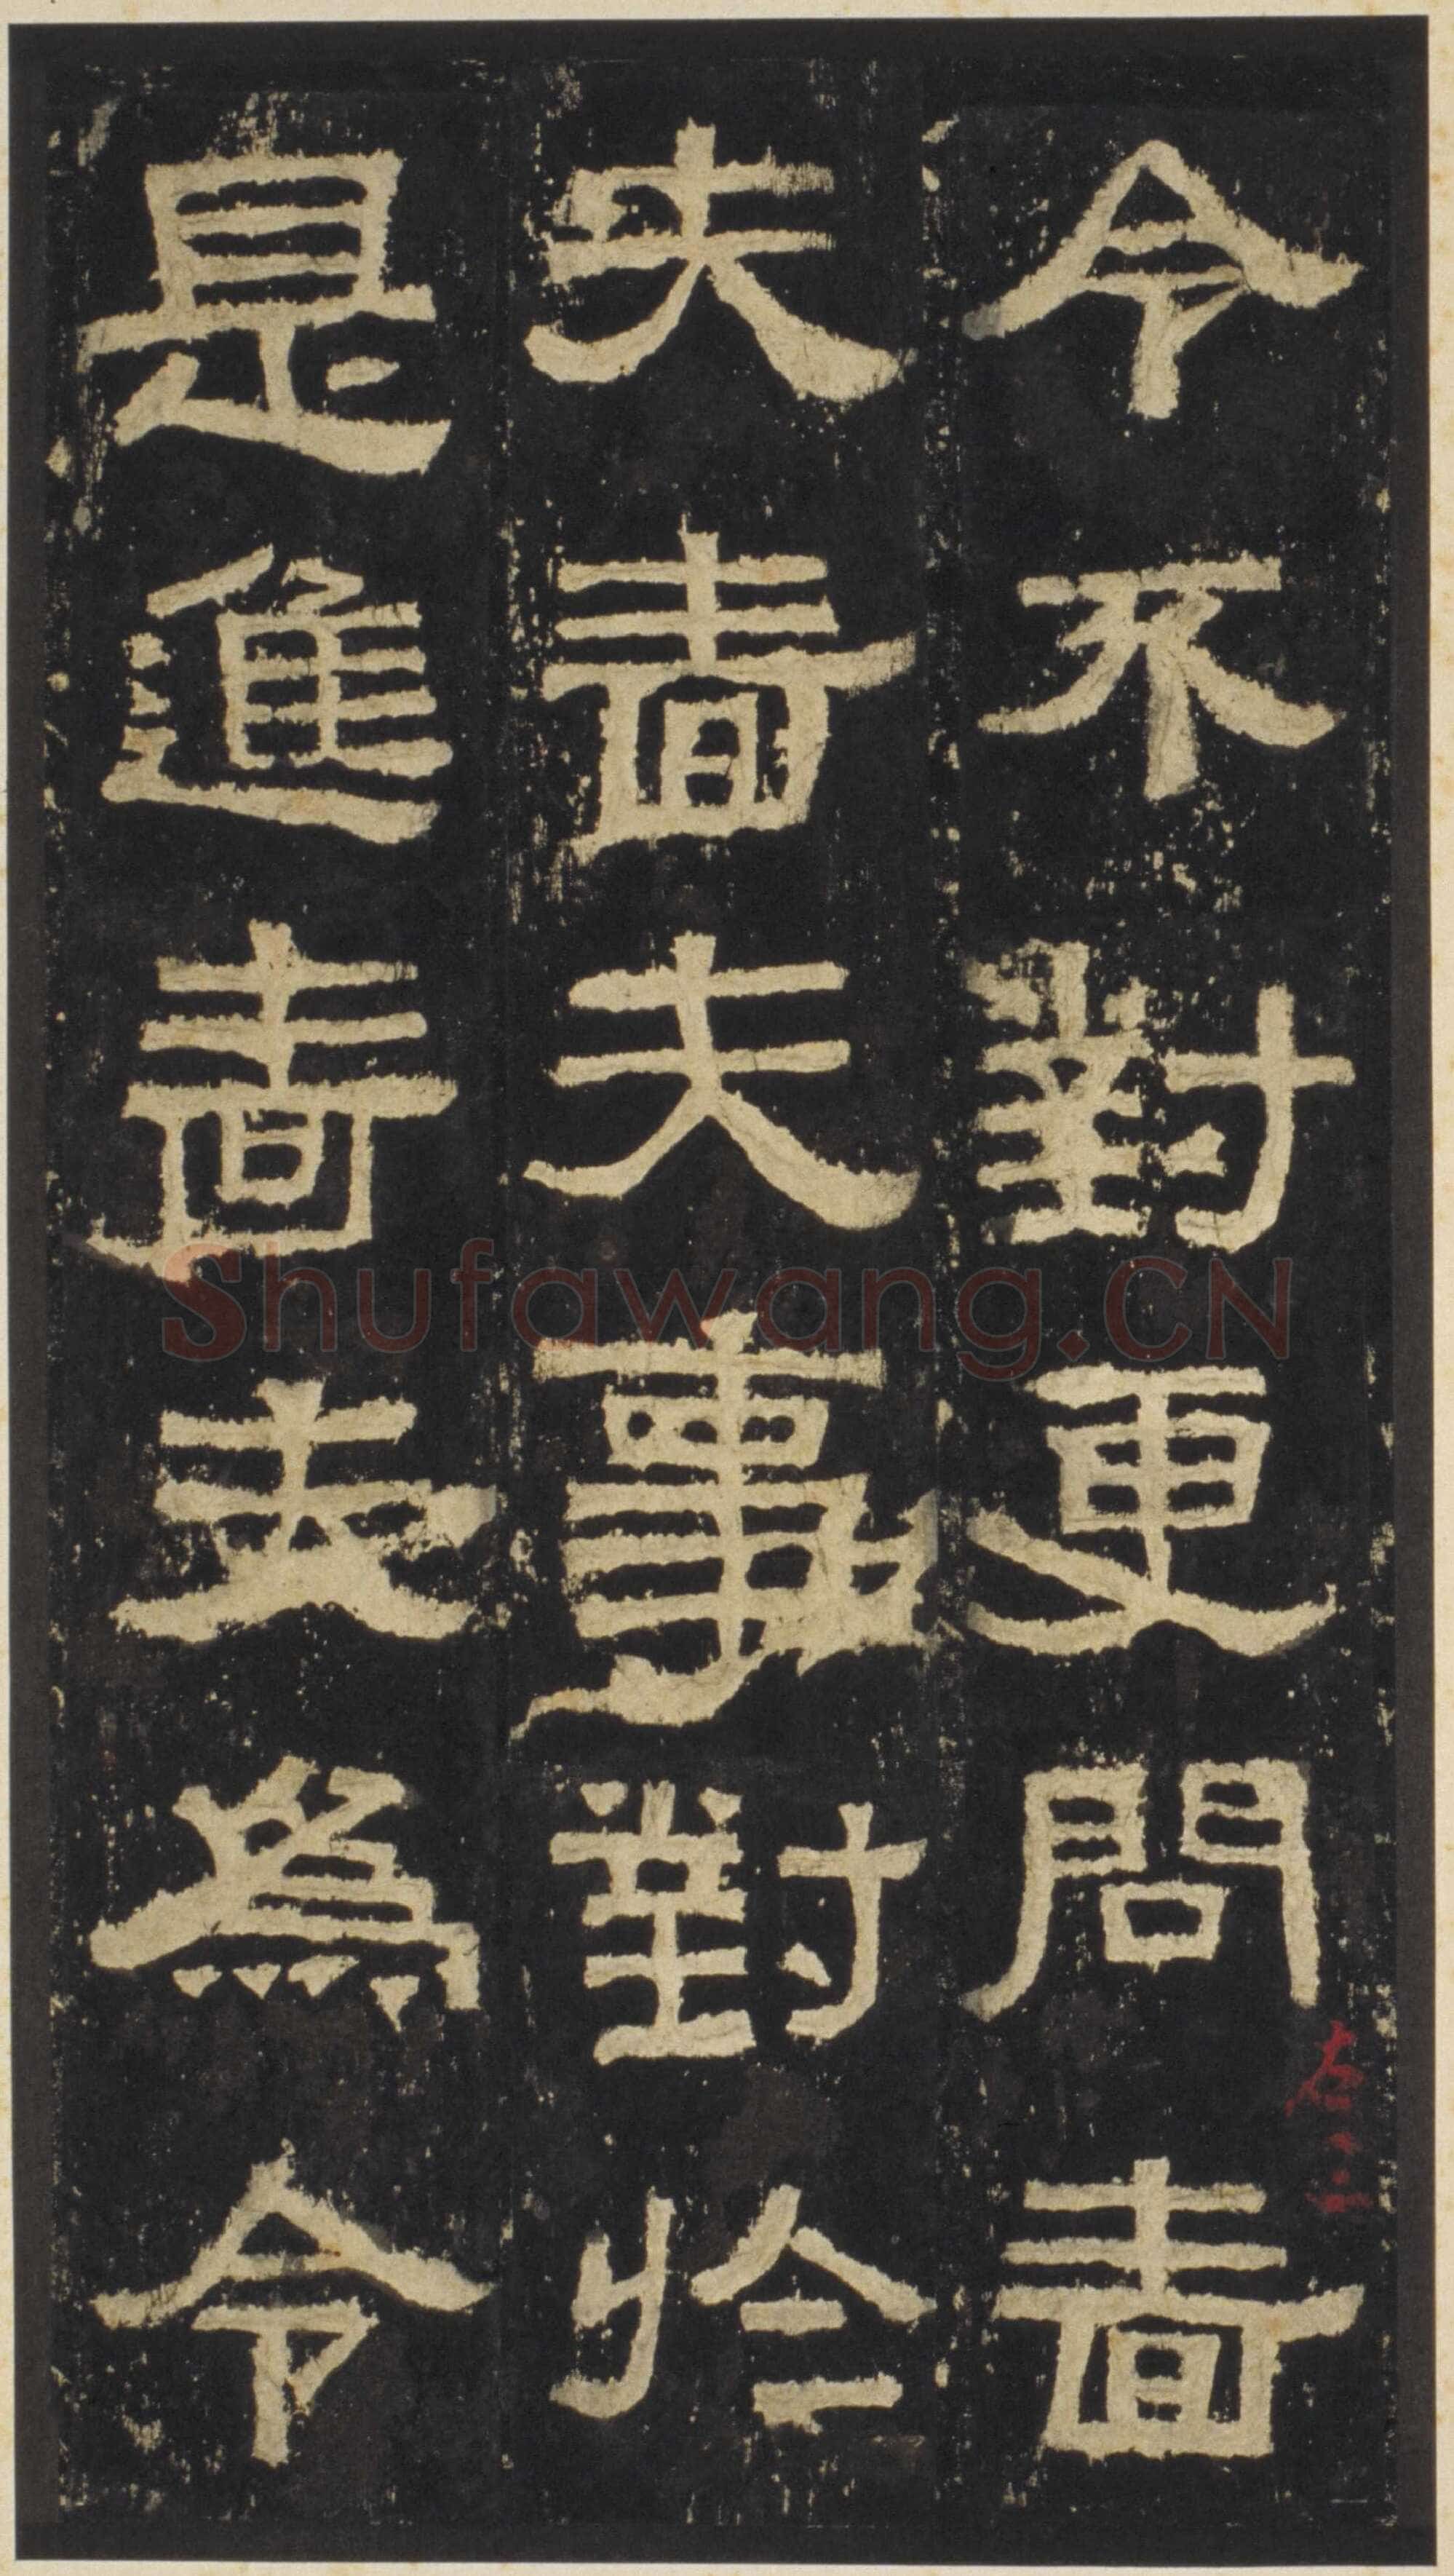 令不對更問嗇
夫嗇夫事對於
是進嗇夫為令
Shufawang.CN